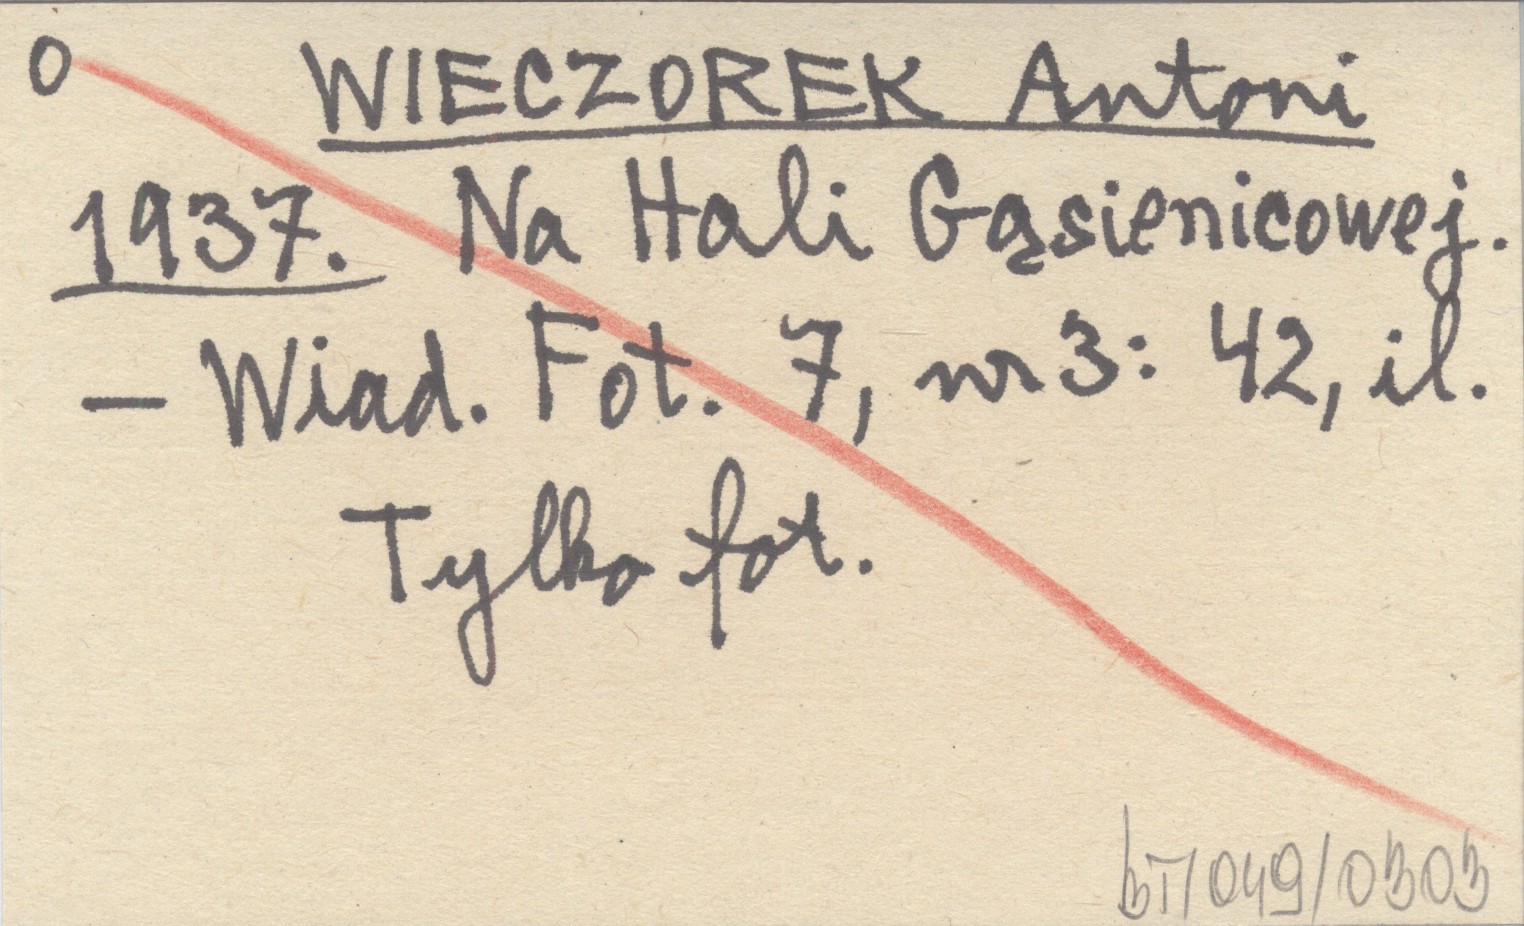 O WIECZOREK Antoni
1937. Na Hali Gąsienicowej.
— Wiad. Fot. 7, nr 3: 42, il.
Tylko fot.
bT/049/0303